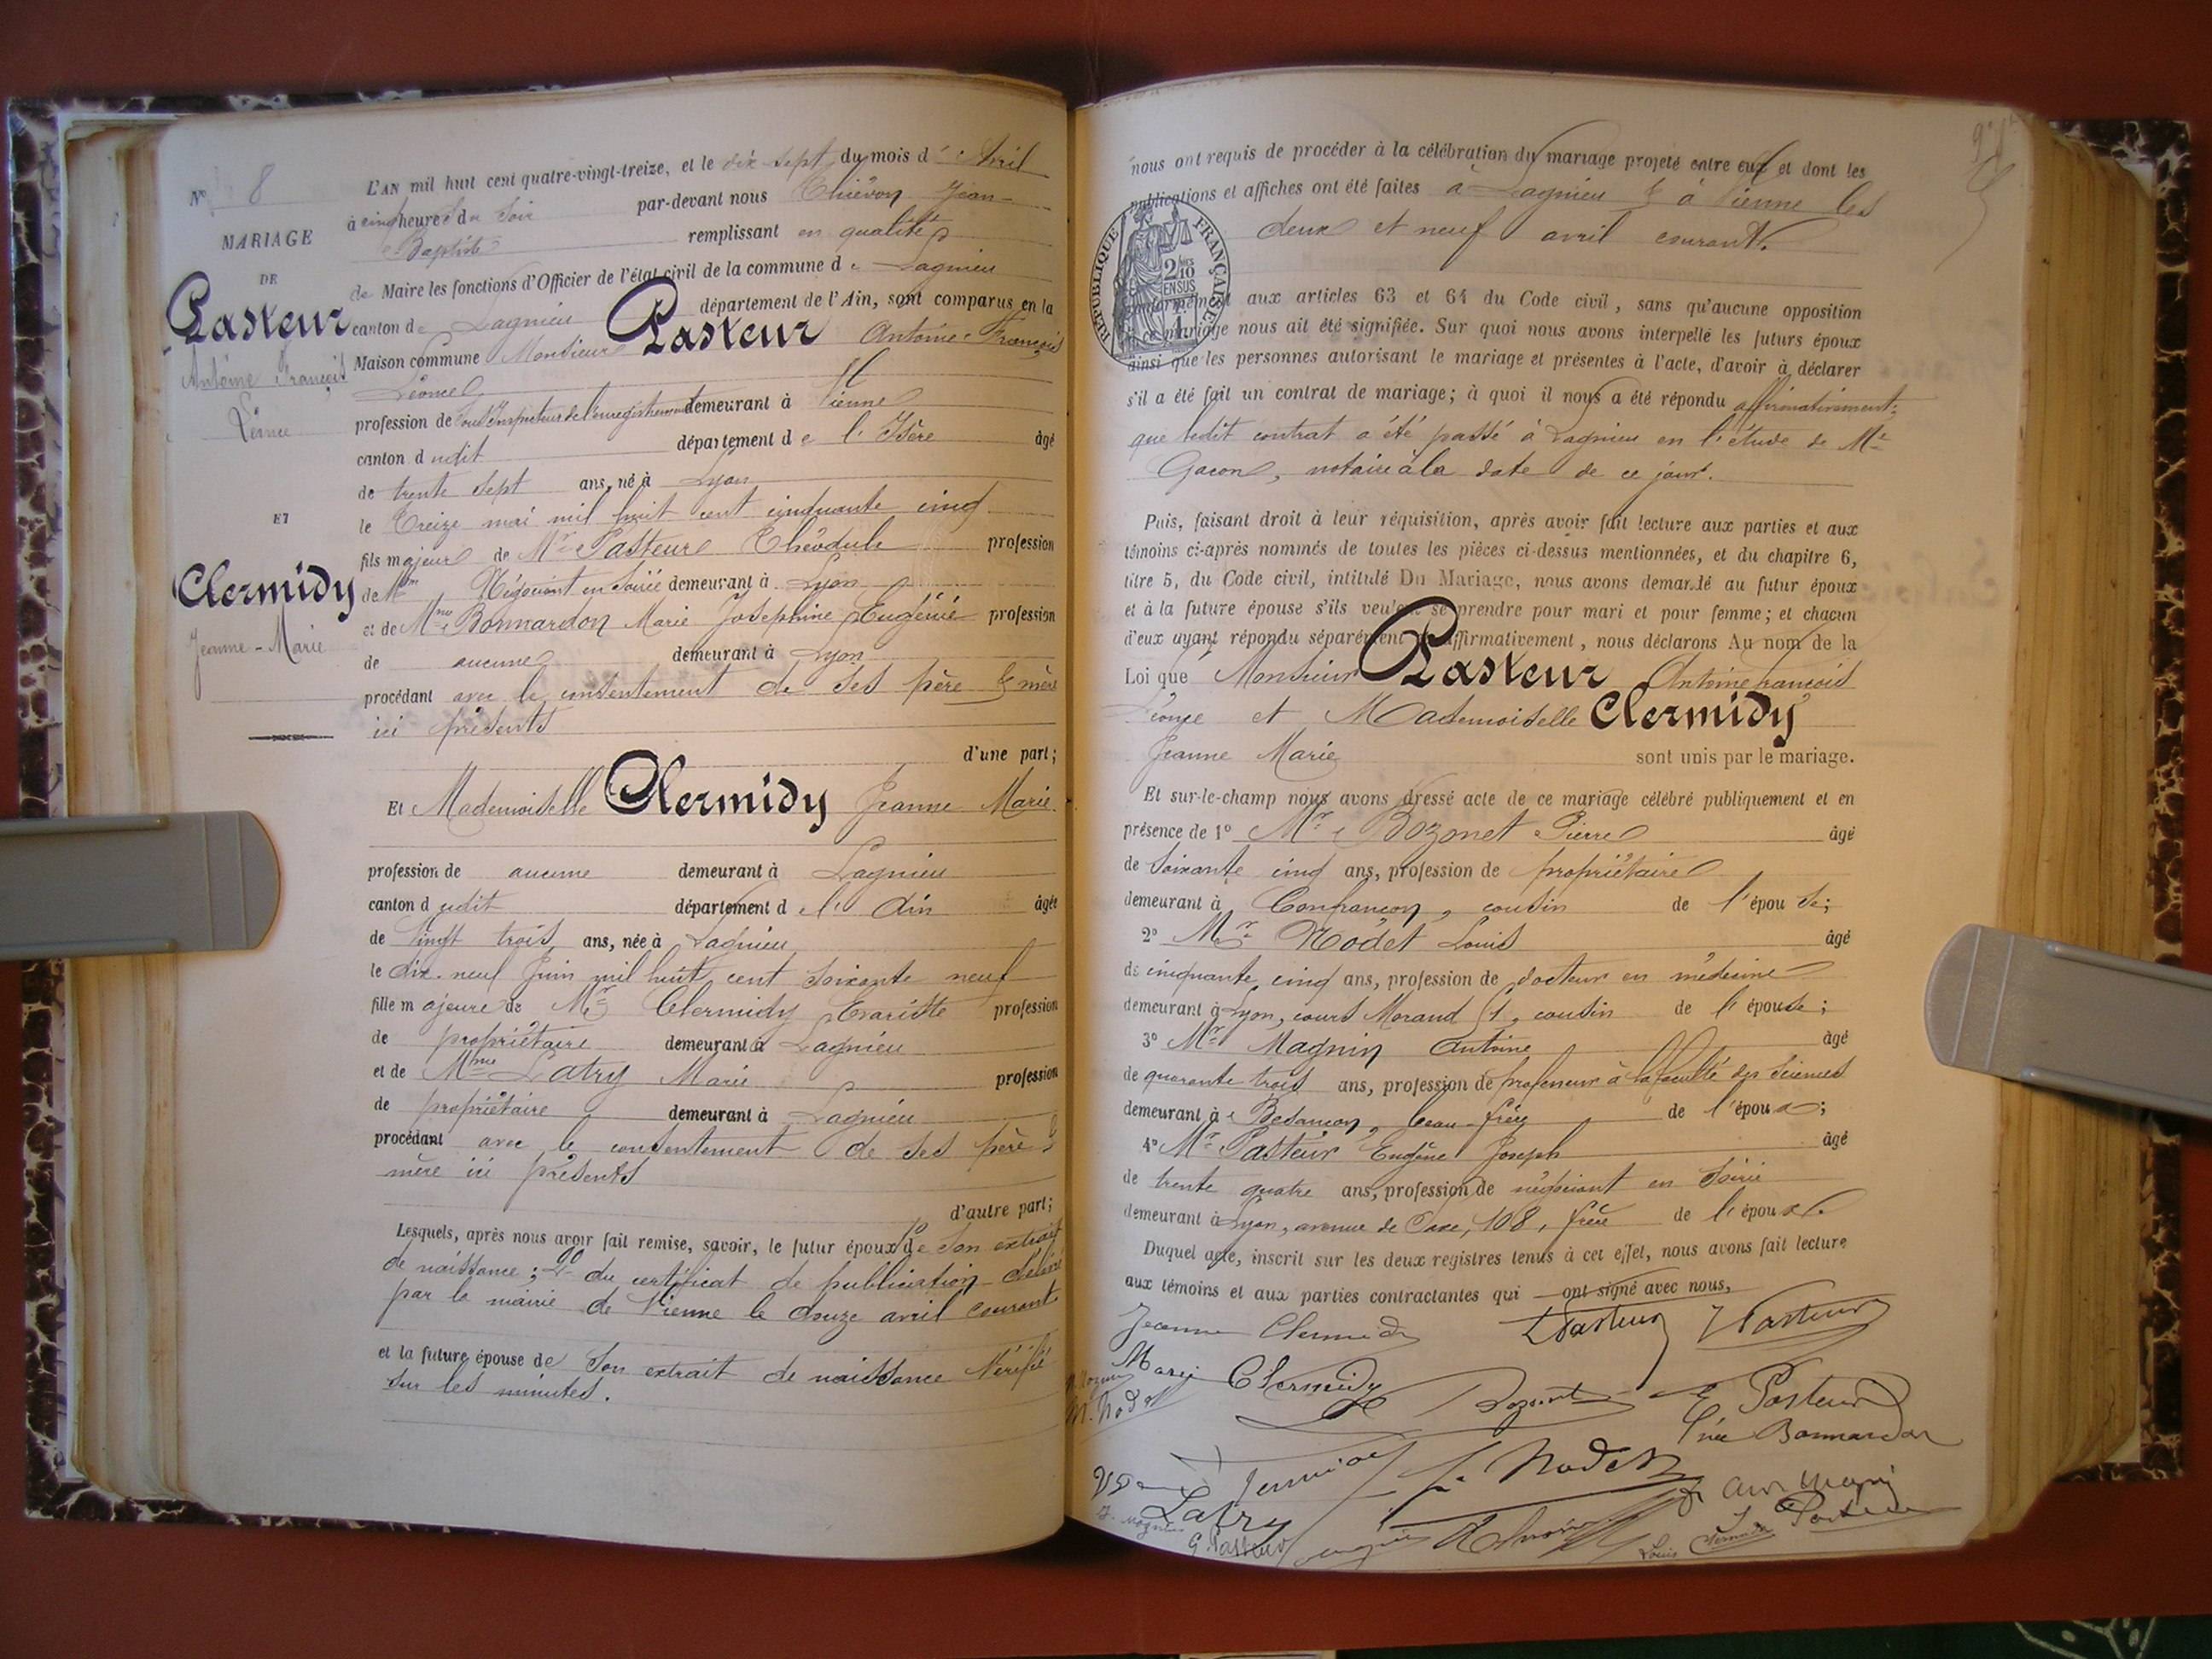 N° 8
MARIAGE
DE
Pasteur
Antoine François
Léonce
ET
Clermidy
Jeanne-Marie
L'AN mil huit cent quatre-vingt-treize, et le dix-sept du mois d'Avril
à cinq heures du soir par-devant nous Thiévon Jean-
Baptiste remplissant en qualité
de Maire les fonctions d'Officier de l'état civil de la commune de Lagnieu
canton de Lagnieu département de l'Ain, sont comparus en la
Maison commune Monsieur Pasteur Antoine François
Léonce
profession de Sous Inspecteur de l'enregistrement demeurant à Vienne
canton dudit département de l'Isère âgé
de trente sept ans, né à Lyon
le Treize mai mil huit cent cinquante cinq
fils majeur de Mr Pasteur Théodule profession
de Négociant en Soirie demeurant à Lyon
et de Mme Bonnardon Marie Joséphine Eugénie profession
de aucune demeurant à Lyon
procédant avec le consentement de ses père & mère
ici présents
d'une part;
Et Mademoiselle Clermidy Jeanne Marie
profession de aucune demeurant à Lagnieu
canton dudit département de l'Ain âgée
de vingt trois ans, née à Lagnieu
le dix-neuf Juin mil huit cent soixante neuf
fille majeure de Mr Clermidy Evariste profession
de propriétaire demeurant à Lagnieu
et de Mme Latry Marie profession
de propriétaire demeurant à Lagnieu
procédant avec le consentement de ses père &
mère ici présents
d'autre part;
Lesquels, après nous avoir fait remise, savoir, le futur époux 1° de son extrait
de naissance; 2° du certificat de publication délivré
par la mairie de Vienne le douze avril courant
et la future épouse de son extrait de naissance vérifié
sur les minutes.
nous ont requis de procéder à la célébration du mariage projeté entre eux et dont les
publications et affiches ont été faites à Lagnieu & à Vienne les
deux et neuf avril courant.
RÉPUBLIQUE FRANÇAISE
2/10 EN SUS
conformément aux articles 63 et 64 du Code civil, sans qu'aucune opposition
à ce mariage nous ait été signifiée. Sur quoi nous avons interpellé les futurs époux
ainsi que les personnes autorisant le mariage et présentes à l'acte, d'avoir à déclarer
s'il a été fait un contrat de mariage; à quoi il nous a été répondu affirmativement:
que ledit contrat a été passé à Lagnieu en l'étude de Me
Gacon, notaire à la date de ce jour.
Puis, faisant droit à leur réquisition, après avoir fait lecture aux parties et aux
témoins ci-après nommés de toutes les pièces ci-dessus mentionnées, et du chapitre 6,
titre 5, du Code civil, intitulé Du Mariage, nous avons demandé au futur époux
et à la future épouse s'ils veulent se prendre pour mari et pour femme; et chacun
d'eux ayant répondu séparément et affirmativement, nous déclarons Au nom de la
Loi que Monsieur Pasteur Antoine François
Léonce et Mademoiselle Clermidy
Jeanne Marie sont unis par le mariage.
Et sur-le-champ nous avons dressé acte de ce mariage célébré publiquement et en
présence de 1° Mr Bozonet Pierre âgé
de soixante cinq ans, profession de propriétaire
demeurant à Confrançon, cousin de l'épouse;
2° Mr Nodet Louis âgé
de cinquante cinq ans, profession de docteur en médecine
demeurant à Lyon, cours Morand 51, cousin de l'épouse;
3° Mr Magnin Antoine âgé
de quarante trois ans, profession de professeur à la faculté des Sciences
demeurant à Besançon, beau-frère de l'époux;
4° Mr Pasteur Eugène Joseph âgé
de trente quatre ans, profession de négociant en Soirie
demeurant à Lyon, avenue de Saxe, 108, frère de l'époux.
Duquel acte, inscrit sur les deux registres tenus à cet effet, nous avons fait lecture
aux témoins et aux parties contractantes qui ont signé avec nous.
Jeanne Clermidy L Pasteur Pasteur
Marie Clermidy Bozonet E Pasteur
M. Nodet née Bonnardon
L. Nodet Ant Magnin
Latry J Pasteur
G. Pasteur Louis Clermidy